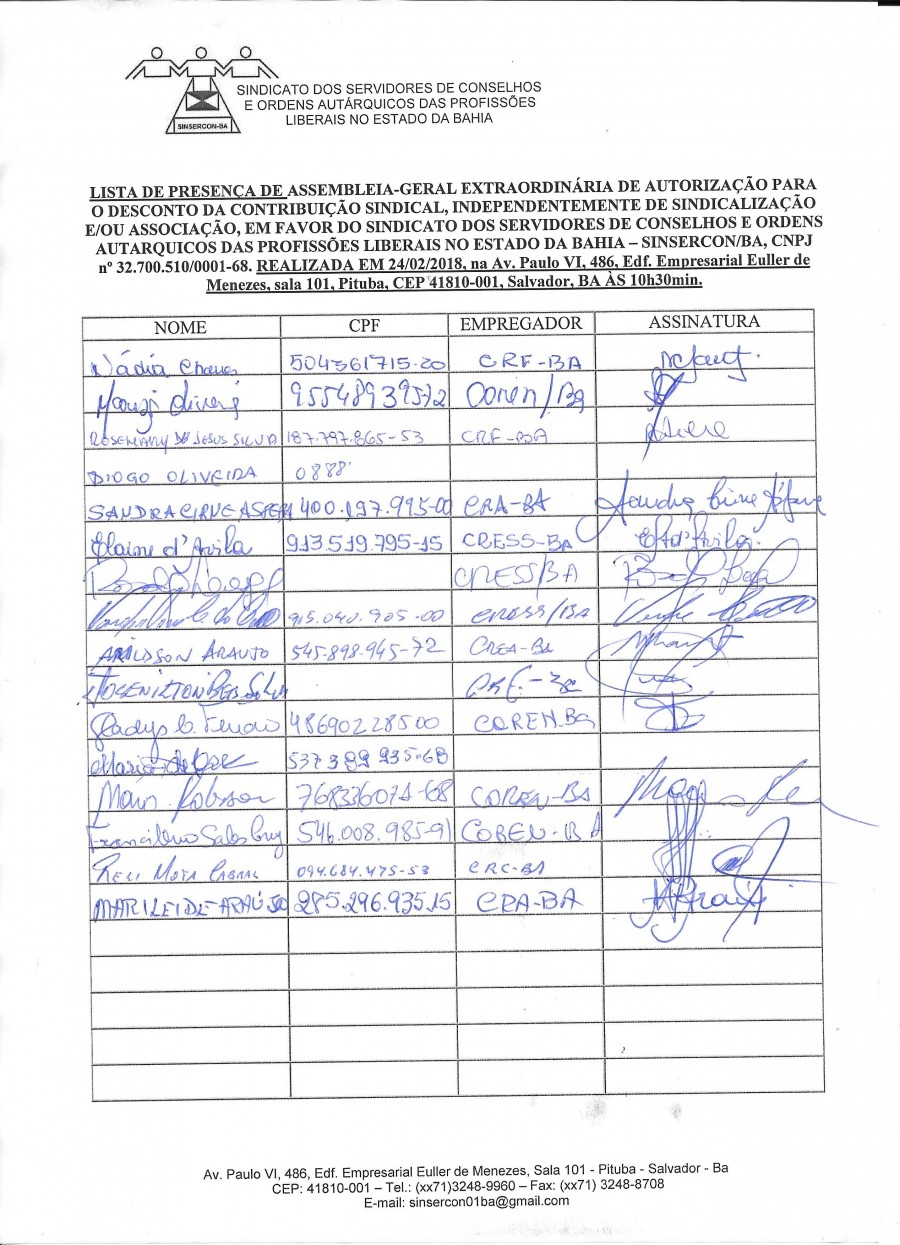 SINSERCON-BA
SINDICATO DOS SERVIDORES DE CONSELHOS
E ORDENS AUTÁRQUICOS DAS PROFISSÕES
LIBERAIS NO ESTADO DA BAHIA
LISTA DE PRESENÇA DE ASSEMBLEIA-GERAL EXTRAORDINÁRIA DE AUTORIZAÇÃO PARA
O DESCONTO DA CONTRIBUIÇÃO SINDICAL, INDEPENDENTEMENTE DE SINDICALIZAÇÃO
E/OU ASSOCIAÇÃO, EM FAVOR DO SINDICATO DOS SERVIDORES DE CONSELHOS E ORDENS
AUTARQUICOS DAS PROFISSÕES LIBERAIS NO ESTADO DA BAHIA – SINSERCON/BA, CNPJ
nº 32.700.510/0001-68. REALIZADA EM 24/02/2018, na Av. Paulo VI, 486, Edf. Empresarial Euller de
Menezes, sala 101, Pituba, CEP 41810-001, Salvador, BA ÀS 10h30min.
NOME CPF EMPREGADOR ASSINATURA
Nádia Chaves 504361715-20 CRF-BA
95548939572 Coren/Ba
ROSEMARY DE JESUS SILVA 187.797.865-53 CRF-BA
DIOGO OLIVEIRA 0888
SANDRA CIRNE 400.197.995-00 CRA-BA Sandra Cirne
Elaine d'Avila 913.519.795-15 CRESS-BA
CRESS/BA
915.040.905-00 CRESS/BA
ARILDSON ARAUJO 545-898-945-72 CREA-BA
Gladys C. 48690228500 COREN-Ba
Maria de 537389935-68
Mario Robson 768336074-68 COREN-BA
Sales 546.008.985-91 COREN-BA
RELI MOTA CABRAL 094.684.475-53 CRC-BA
MARILEIDE ARAÚJO 285.296.935.15 CRA-BA
Av. Paulo VI, 486, Edf. Empresarial Euller de Menezes, Sala 101 - Pituba - Salvador - Ba
CEP: 41810-001 – Tel.: (xx71)3248-9960 – Fax: (xx71) 3248-8708
E-mail: sinsercon01ba@gmail.com